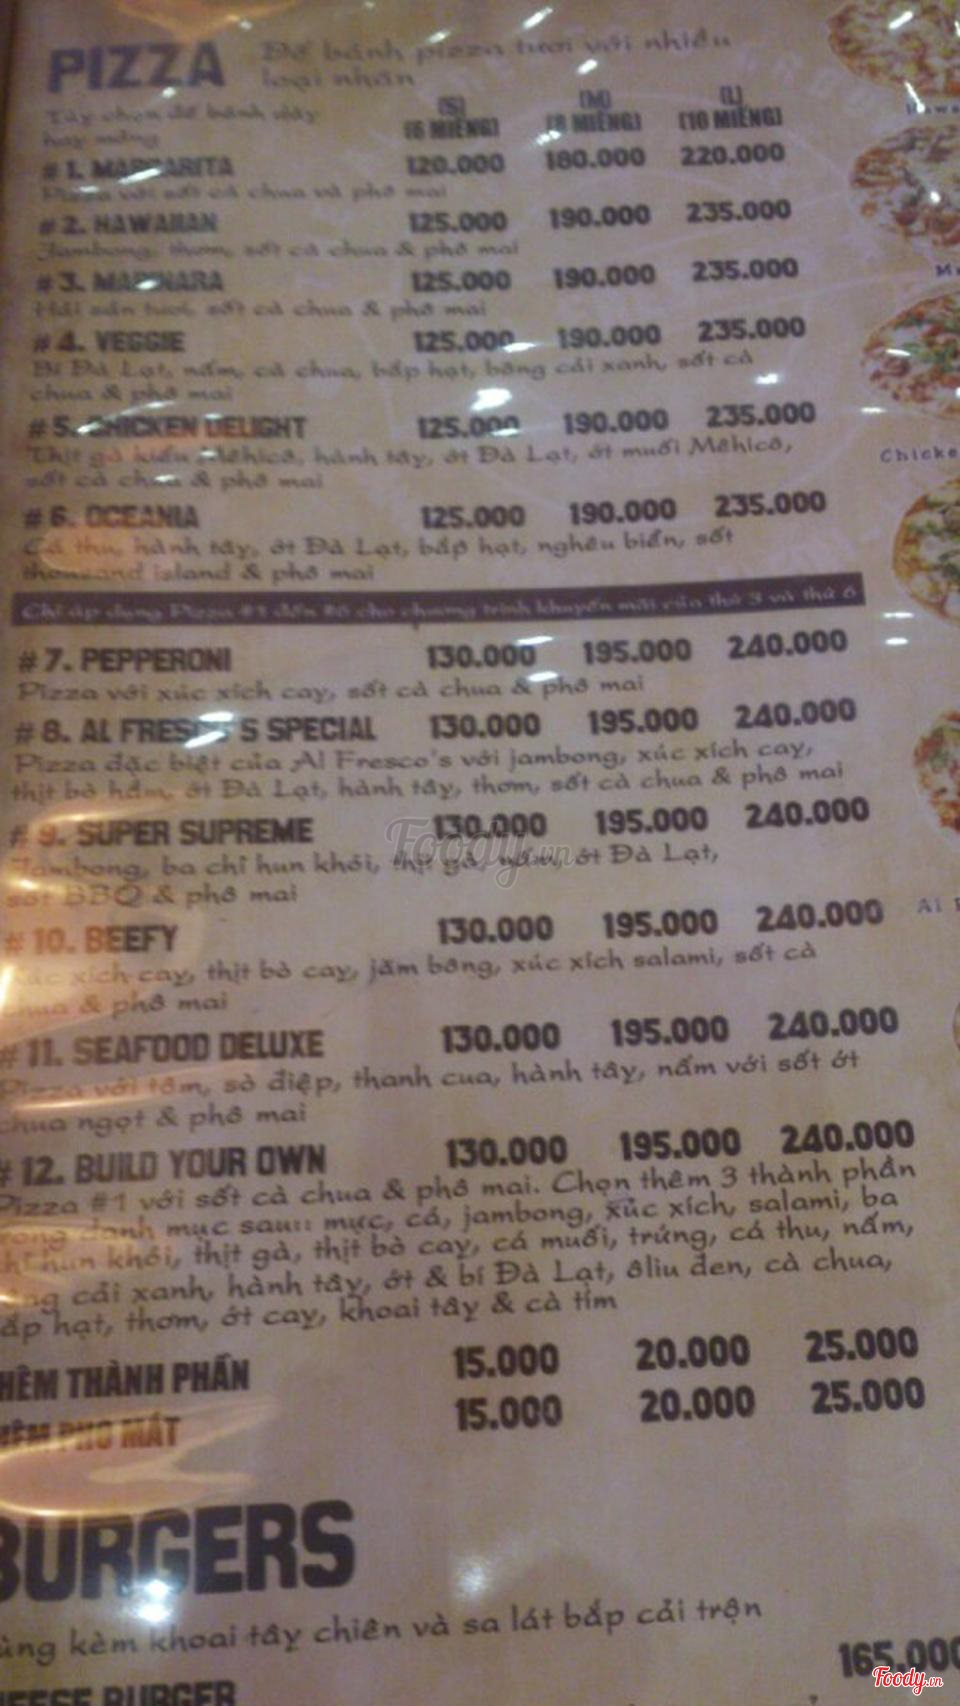 PIZZA Đế bánh pizza tươi với nhiều
loại nhân
Tùy chọn đế bánh dày
hay mỏng
(S) (M) (L)
(6 MIẾNG) (8 MIẾNG) (10 MIẾNG)
# 1. MARGARITA 120.000 180.000 220.000
Pizza với sốt cà chua và phô mai
# 2. HAWAIIAN 125.000 190.000 235.000
Jambong, thơm, sốt cà chua & phô mai
# 3. MARINARA 125.000 190.000 235.000
Hải sản tươi, sốt cà chua & phô mai
# 4. VEGGIE 125.000 190.000 235.000
Bí Đà Lạt, nấm, cà chua, bắp hạt, bông cải xanh, sốt cà
chua & phô mai
# 5. CHICKEN DELIGHT 125.000 190.000 235.000
Thịt gà kiểu Mêhicô, hành tây, ớt Đà Lạt, ớt muối Mêhicô,
sốt cà chua & phô mai
# 6. OCEANIA 125.000 190.000 235.000
Cá thu, hành tây, ớt Đà Lạt, bắp hạt, nghêu biển, sốt
thousand island & phô mai
Chỉ áp dụng Pizza #1 đến #6 cho chương trình khuyến mãi của thứ 3 và thứ 6
# 7. PEPPERONI 130.000 195.000 240.000
Pizza với xúc xích cay, sốt cà chua & phô mai
# 8. AL FRESCO'S SPECIAL 130.000 195.000 240.000
Pizza đặc biệt của Al Fresco's với jambong, xúc xích cay,
thịt bò hầm, ớt Đà Lạt, hành tây, thơm, sốt cà chua & phô mai
# 9. SUPER SUPREME 130.000 195.000 240.000
Jambong, ba chỉ hun khói, thịt gà, nấm, ớt Đà Lạt,
sốt BBQ & phô mai
# 10. BEEFY 130.000 195.000 240.000
Xúc xích cay, thịt bò cay, jăm bông, xúc xích salami, sốt cà
chua & phô mai
# 11. SEAFOOD DELUXE 130.000 195.000 240.000
Pizza với tôm, sò điệp, thanh cua, hành tây, nấm với sốt ớt
chua ngọt & phô mai
# 12. BUILD YOUR OWN 130.000 195.000 240.000
Pizza #1 với sốt cà chua & phô mai. Chọn thêm 3 thành phần
trong danh mục sau: mực, cá, jambong, xúc xích, salami, ba
chỉ hun khói, thịt gà, thịt bò cay, cá muối, trứng, cá thu, nấm,
bông cải xanh, hành tây, ớt & bí Đà Lạt, ôliu đen, cà chua,
bắp hạt, thơm, ớt cay, khoai tây & cà tím
THÊM THÀNH PHẦN 15.000 20.000 25.000
THÊM PHO MÁT 15.000 20.000 25.000
BURGERS
Dùng kèm khoai tây chiên và sa lát bắp cải trộn
165.000
CHEESE BURGER
Chicke
Al F
Foody.vn
Foody.vn